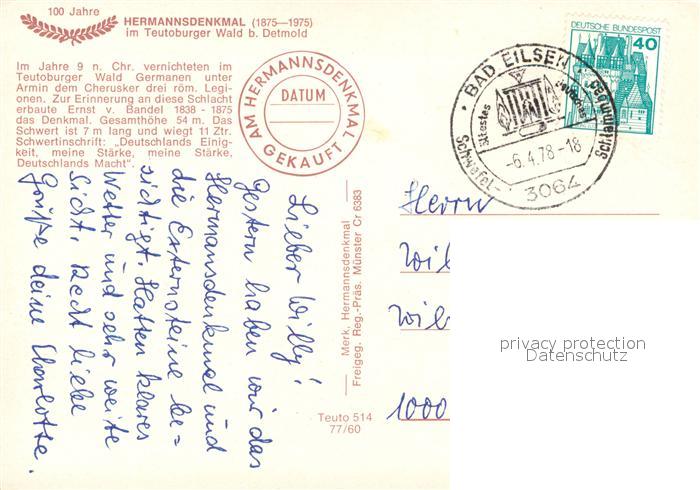 100 Jahre
HERMANNSDENKMAL (1875—1975)
im Teutoburger Wald b. Detmold
Im Jahre 9 n. Chr. vernichteten im
Teutoburger Wald Germanen unter
Armin dem Cherusker drei röm. Legi-
onen. Zur Erinnerung an diese Schlacht
erbaute Ernst v. Bandel 1838 - 1875
das Denkmal. Gesamthöhe 54 m. Das
Schwert ist 7 m lang und wiegt 11 Ztr.
Schwertinschrift: „Deutschlands Einig-
keit, meine Stärke, meine Stärke,
Deutschlands Macht".
AM HERMANNSDENKMAL
DATUM
GEKAUFT
BAD EILSEN
Ältestes
Schwefel-
-6.4.78-18
3064
DEUTSCHE BUNDESPOST
40
Lieber Willy!
Gestern haben wir das
Hermansdenkmal und
die Externsteine be=
sichtigt. Hatten klares
Wetter und sehr weite
Sicht. Recht liebe
Grüße deine Charlotte.
Merk, Hermannsdenkmal
Freigeg. Reg.-Präs. Münster Cr 6383
Teuto 514
77/60
Herrn
Wil
Wil
1000
privacy protection
Datenschutz